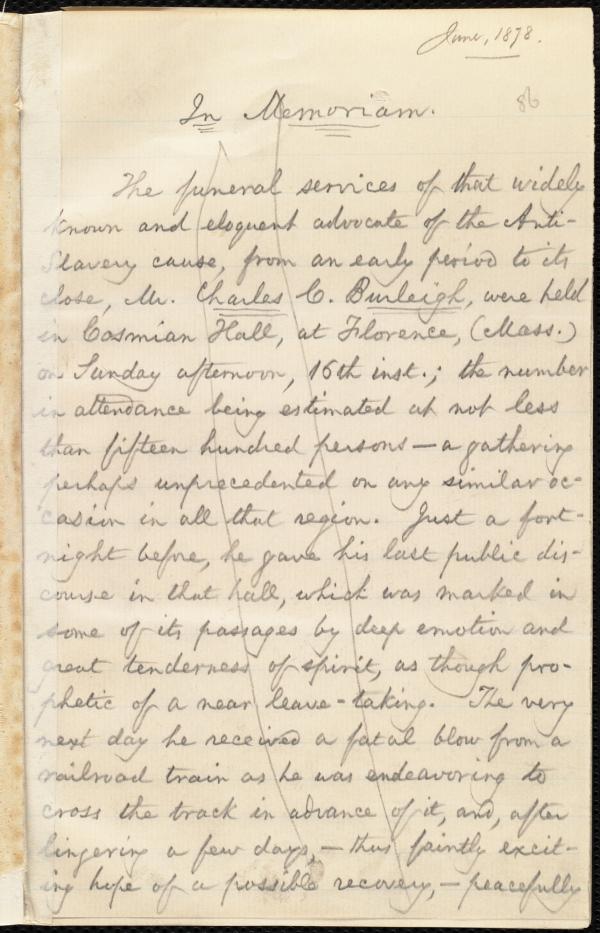 June, 1878.
86
In Memoriam.
The funeral services of that widely
known and eloquent advocate of the Anti-
Slavery cause, from an early period to its
close, Mr. Charles C. Burleigh, were held
in Cosmian Hall, at Florence, (Mass.)
on Sunday afternoon, 16th inst.; the number
in attendance being estimated at not less
than fifteen hundred persons—a gathering
perhaps unprecedented on any similar oc-
casion in all that region. Just a fort-
night before, he gave his last public dis-
course in that hall, which was marked in
some of its passages by deep emotion and
great tenderness of spirit, as though pro-
phetic of a near leave-taking. The very
next day he received a fatal blow from a
railroad train as he was endeavoring to
cross the track in advance of it, and, after
lingering a few days,—thus faintly excit-
ing hope of a possible recovery,—peacefully